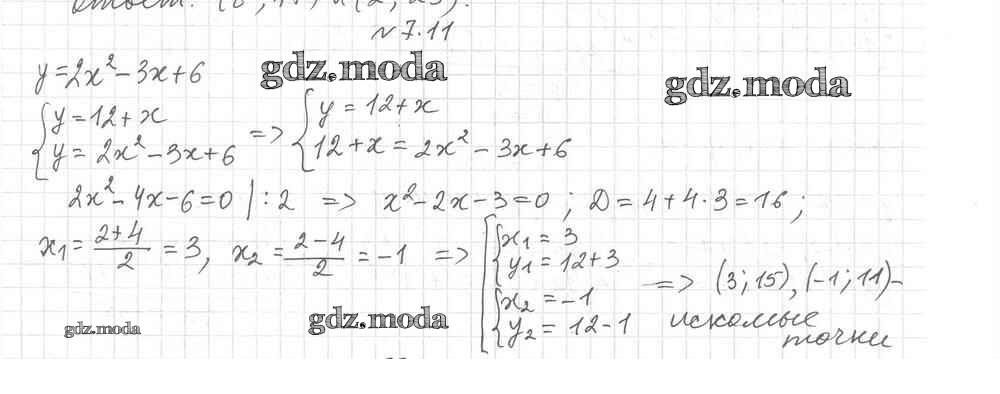 № 7.11
y = 2x² - 3x + 6
gdz.moda
gdz.moda
{ y = 12 + x
y = 2x² - 3x + 6 => { y = 12 + x
12 + x = 2x² - 3x + 6
2x² - 4x - 6 = 0 | : 2 => x² - 2x - 3 = 0 ; D = 4 + 4 · 3 = 16 ;
x₁ = (2+4)/2 = 3, x₂ = (2-4)/2 = -1 => [ { x₁ = 3
y₁ = 12 + 3
{ x₂ = -1
y₂ = 12 - 1 => (3; 15), (-1; 11) -
искомые
точки
gdz.moda
gdz.moda